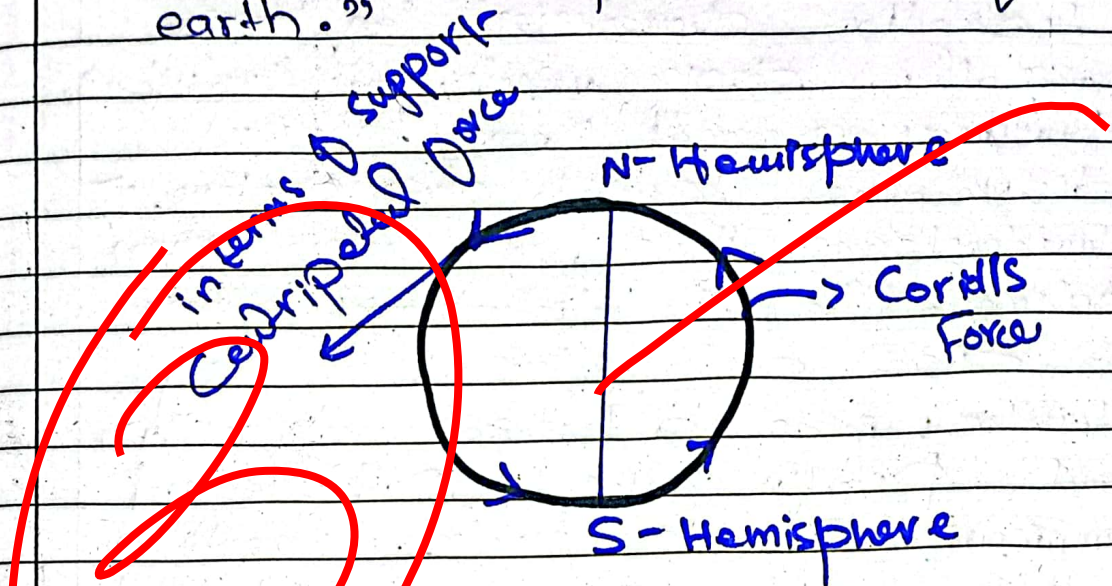 earth."
in terms of support
Centripetal force
N-Hemisphere
Coriolis
Force
S-Hemisphere
2